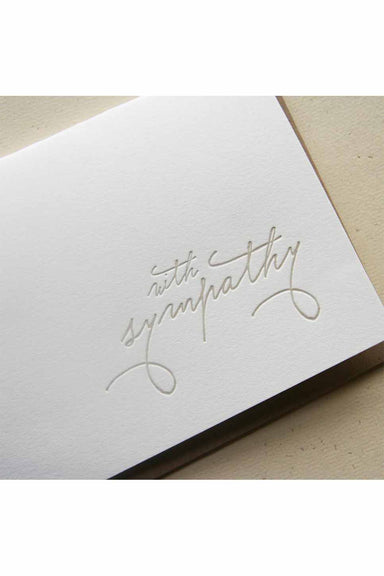 with
sympathy